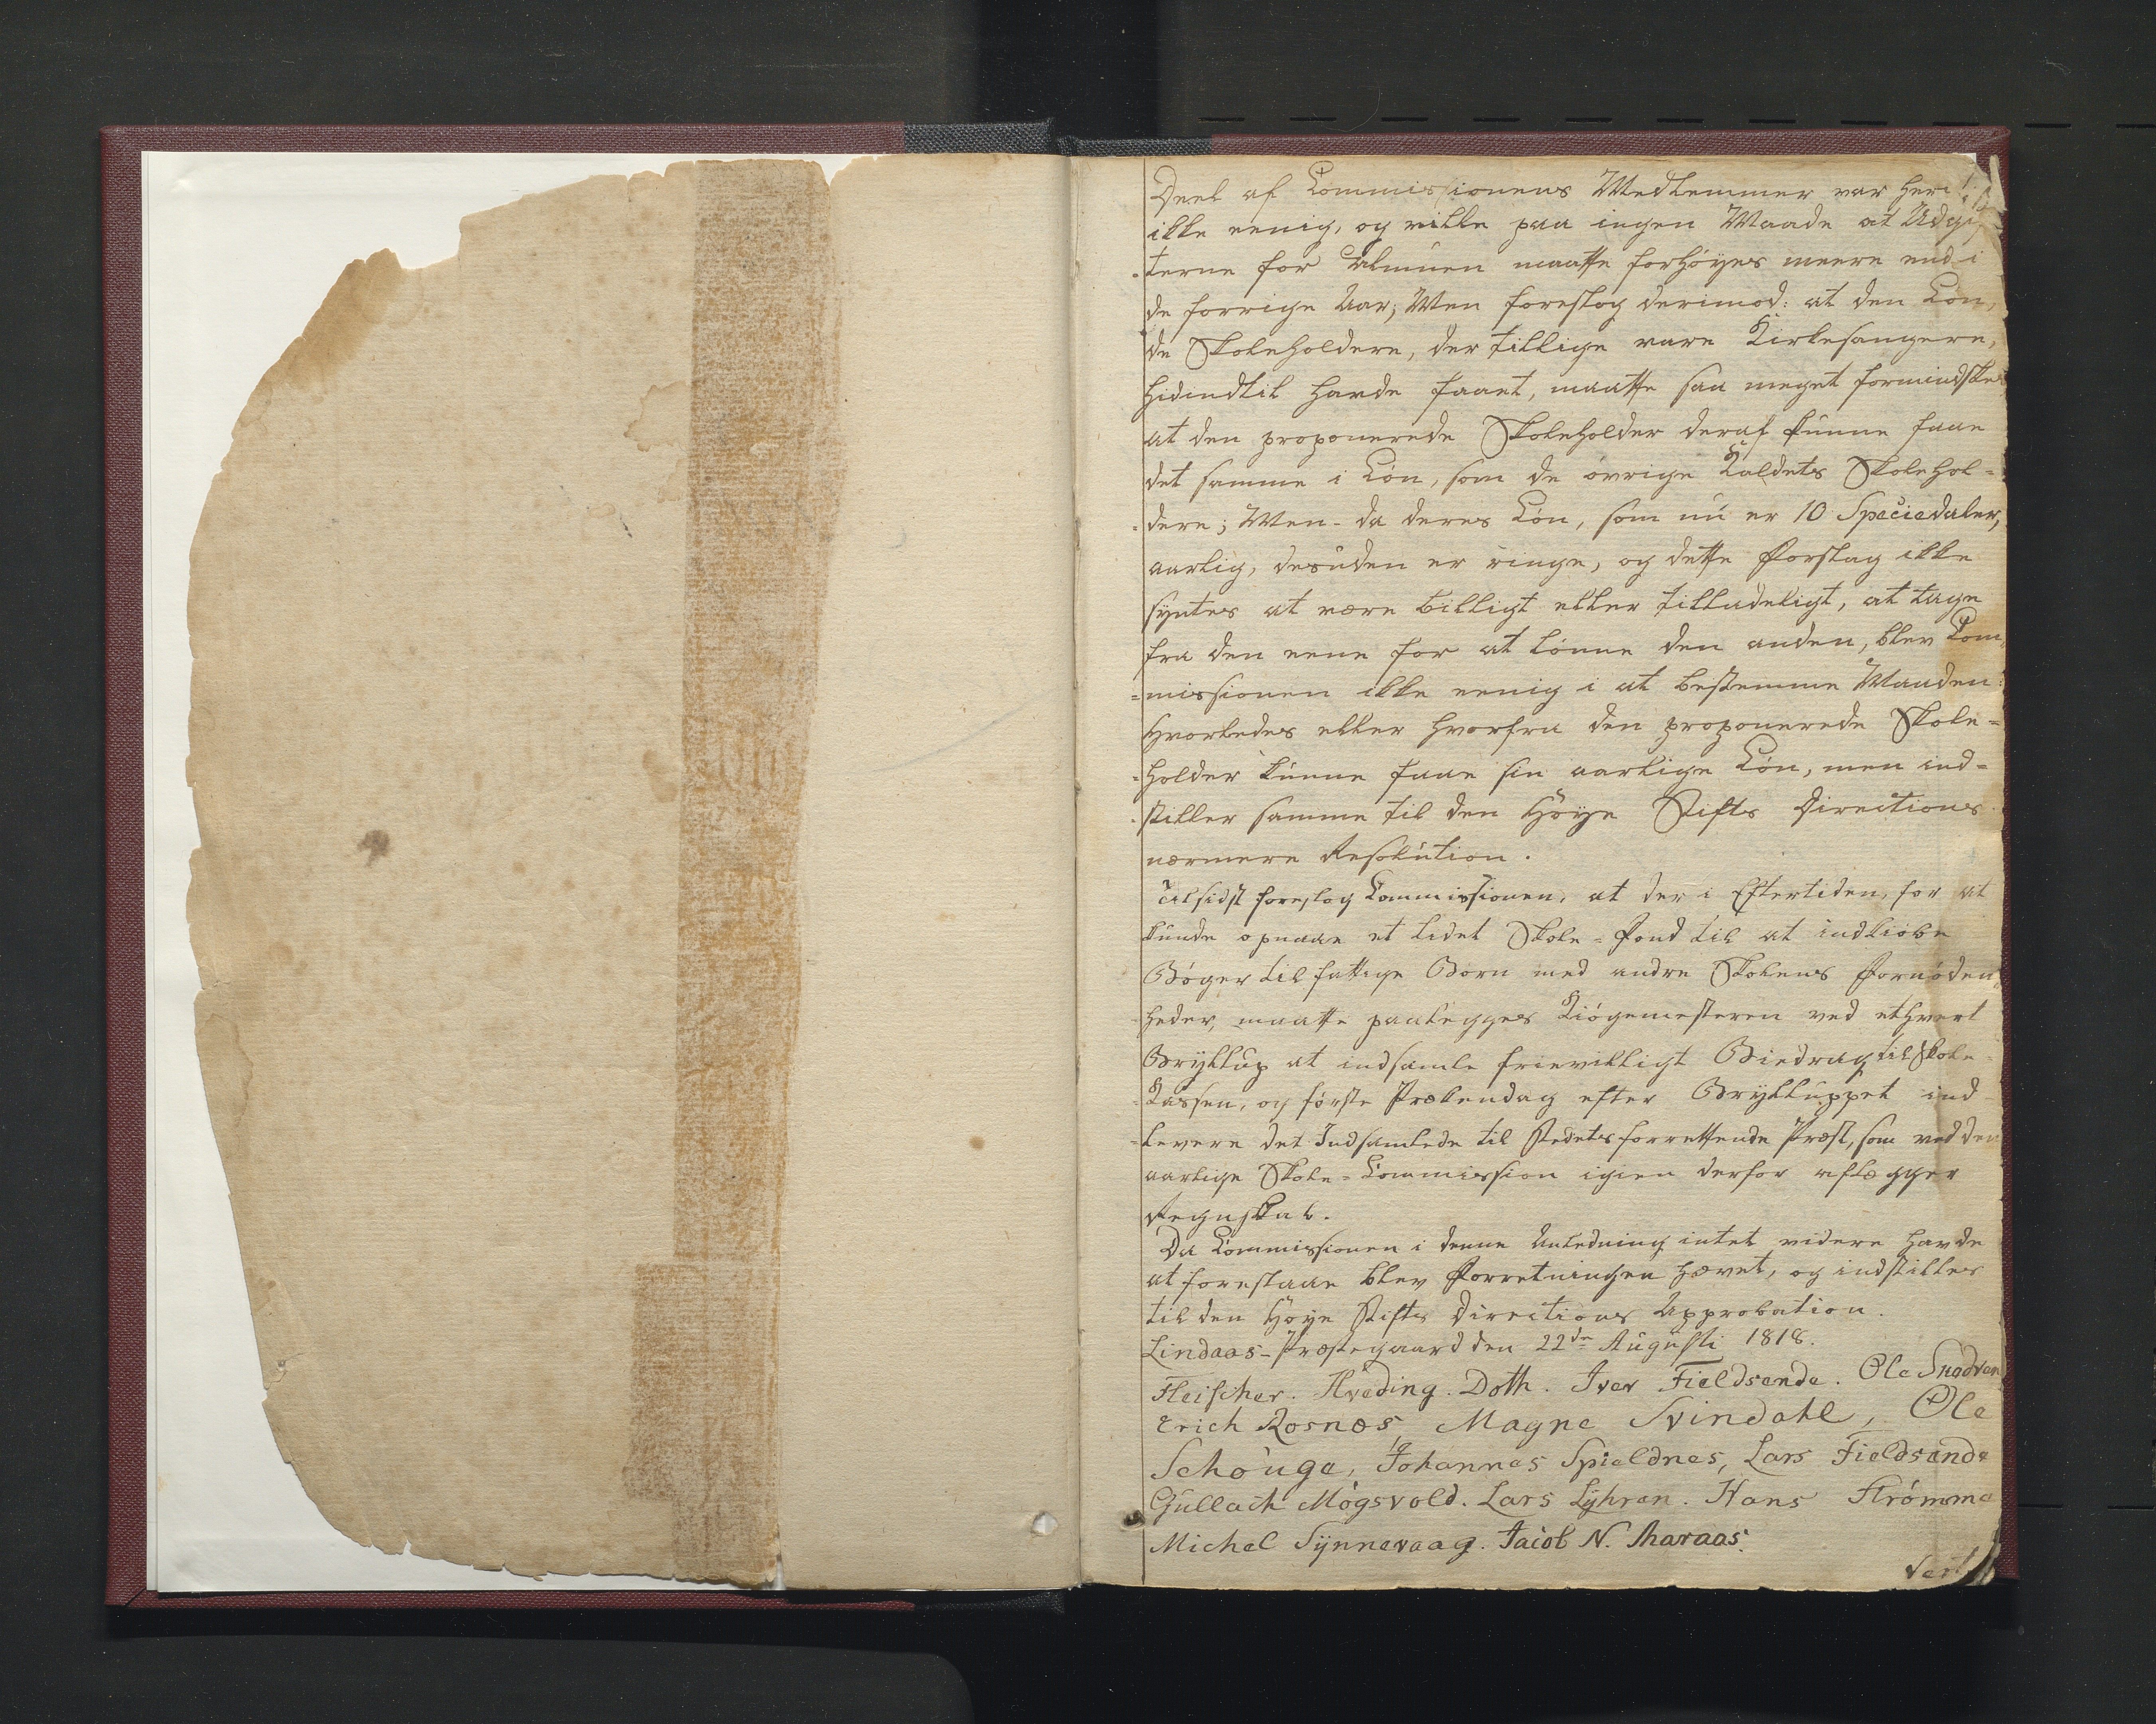 Deel af Commissionens Medlemmer var heri
ikke eenig, og vilde paa ingen Maade at Udgif
-terne for Almuen maatte forhøyes meere end i
de forrige Aar; Men foreslog derimod: at den Løn,
de Skoleholdere, der tillige vare Kirkesangere,
hidindtil havde faaet, maatte saa meget formindskes
at den proponerede Skoleholder deraf kunne faae
det samme i Løn, som de øvrige Kaldets Skolehol=
=dere; Men da deres Løn, som nu er 10 Speciedaler,
aarlig, desuden er ringe, og dette Forslag ikke
syntes at være billigt eller tilladeligt, at tage
fra den eene for at lønne den anden, blev Com,
=missionen ikke eenig i at bestemme Maaden:
hvorledes eller hvorfra den proponerede Skole=
=holder kunne faae sin aarlige Løn, men ind=
-stiller samme til den Høye Stifts Directions
nærmere Resolution.
Tilsidst foreslog Commissionen, at der i Eftertiden, for at
kunde opnaae et lidet Skole=Fond til at indkiøbe
Bøger til fattige Børn med andre Skolens Fornøden=
heder, maatte paalegges Kiøgemesteren ved ethvert
Bryllup at indsamle frievilligt Biedrag til Skole=
=Kassen, og første Prækendag efter Brylluppet ind-
=levere det Indsamlede til Stedets forrettende Præst, som ved den
aarlige Skole=Commission igien derfor aflægger
Regnskab.
Da Commissionen i denne Anledning intet videre havde
at foreslaae blev Forretningen hævet, og indstilles
til den Høye Stifts Directions Approbation.
Lindaas-Præstegaard den 22de Augusti 1818.
Fleischer. Hveding. Doth. Iver Fieldsende. Ole
Erich Rosnæs, Magne Svindahl, Ole
Schouge, Johannes Spieldnes, Lars Fieldsende
Gullach Mógsvold. Lars Lyhren. Hans Strómme
Michel Synnevaag. Jacob N.